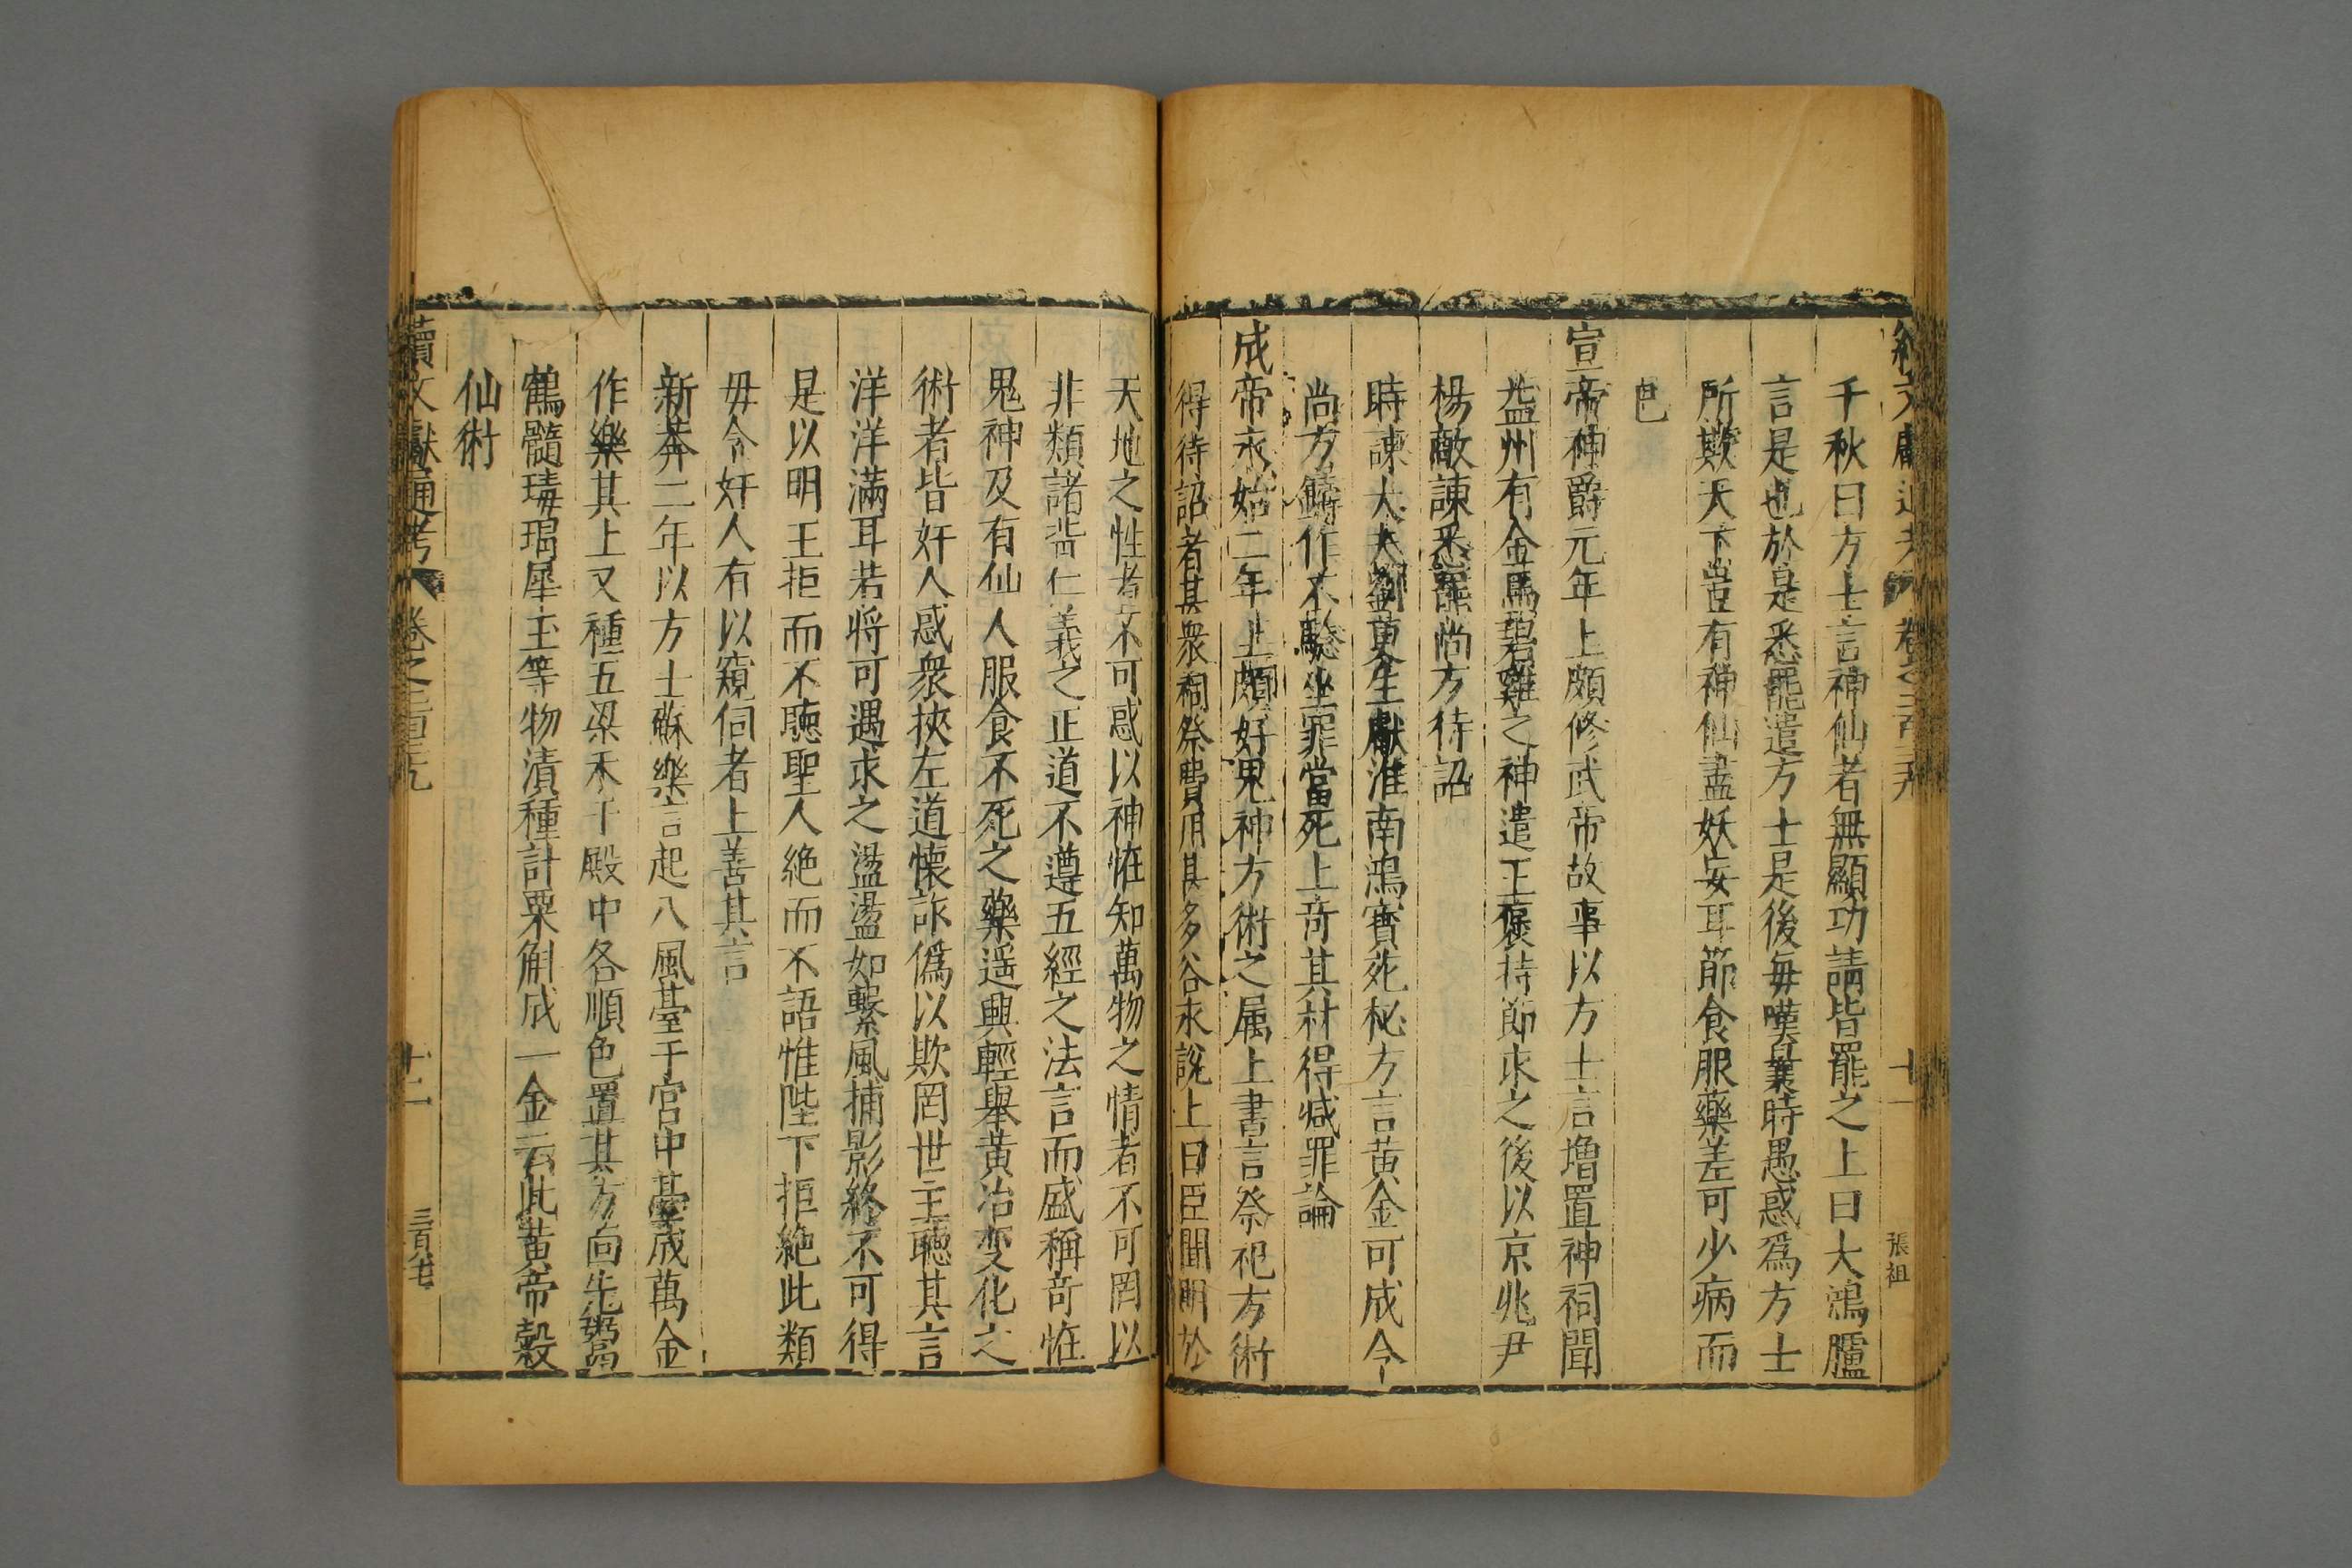 千秋曰方士言神仙者無顯功請皆罷之上曰大鴻臚
言是也於是悉罷遣方士是後每嘆曩時愚惑爲方士
所欺天下豈有神仙盡妖妄耳節食服藥差可少病而
已
宣帝神爵元年上頗修武帝故事以方士言增置神祠聞
益州有金馬碧雞之神遣王褒持節求之後以京兆尹
楊敞諫悉罷尚方待詔
時諫大夫劉更生獻淮南鴻寳苑秘方言黃金可成令
尚方鑄作不驗坐罪當死上竒其材得减罪論
成帝永始二年上頗好鬼神方術之属上書言祭祀方術
得待詔者甚衆祠祭費用甚多谷永說上曰臣聞明於
天地之性者不可惑以神恠知萬物之情者不可罔以
非類諸背仁義之正道不遵五經之法言而盛稱竒恠
鬼神及有仙人服食不死之藥遥興輕舉黃冶变化之
術者皆奸人惑衆挾左道懐詐僞以欺罔世主聽其言
洋洋滿耳若將可遇求之盪盪如繫風捕影終不可得
是以明王拒而不聽聖人絶而不語惟陛下拒絶此類
毋令奸人有以窺伺者上善其言
新莽二年以方士蘇樂言起八風臺于宫中臺成萬金
作樂其上又種五梁禾于殿中各順色置其方向先鬻
鶴髓瑇瑁犀玉等物漬種計粟斛成一金云此黃帝穀
仙術
續文獻通考 卷之二百四十九
十二
三百廿七
十一
張祖